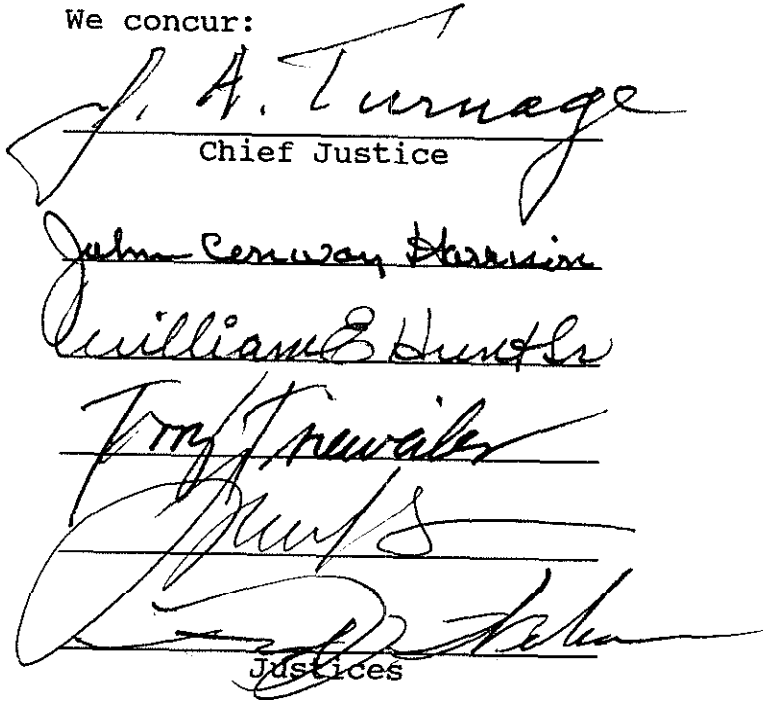 We concur:
J. A. Turnage
Chief Justice
John Conway Harrison
William E Hunt Sr
Terry Trieweiler
Justices